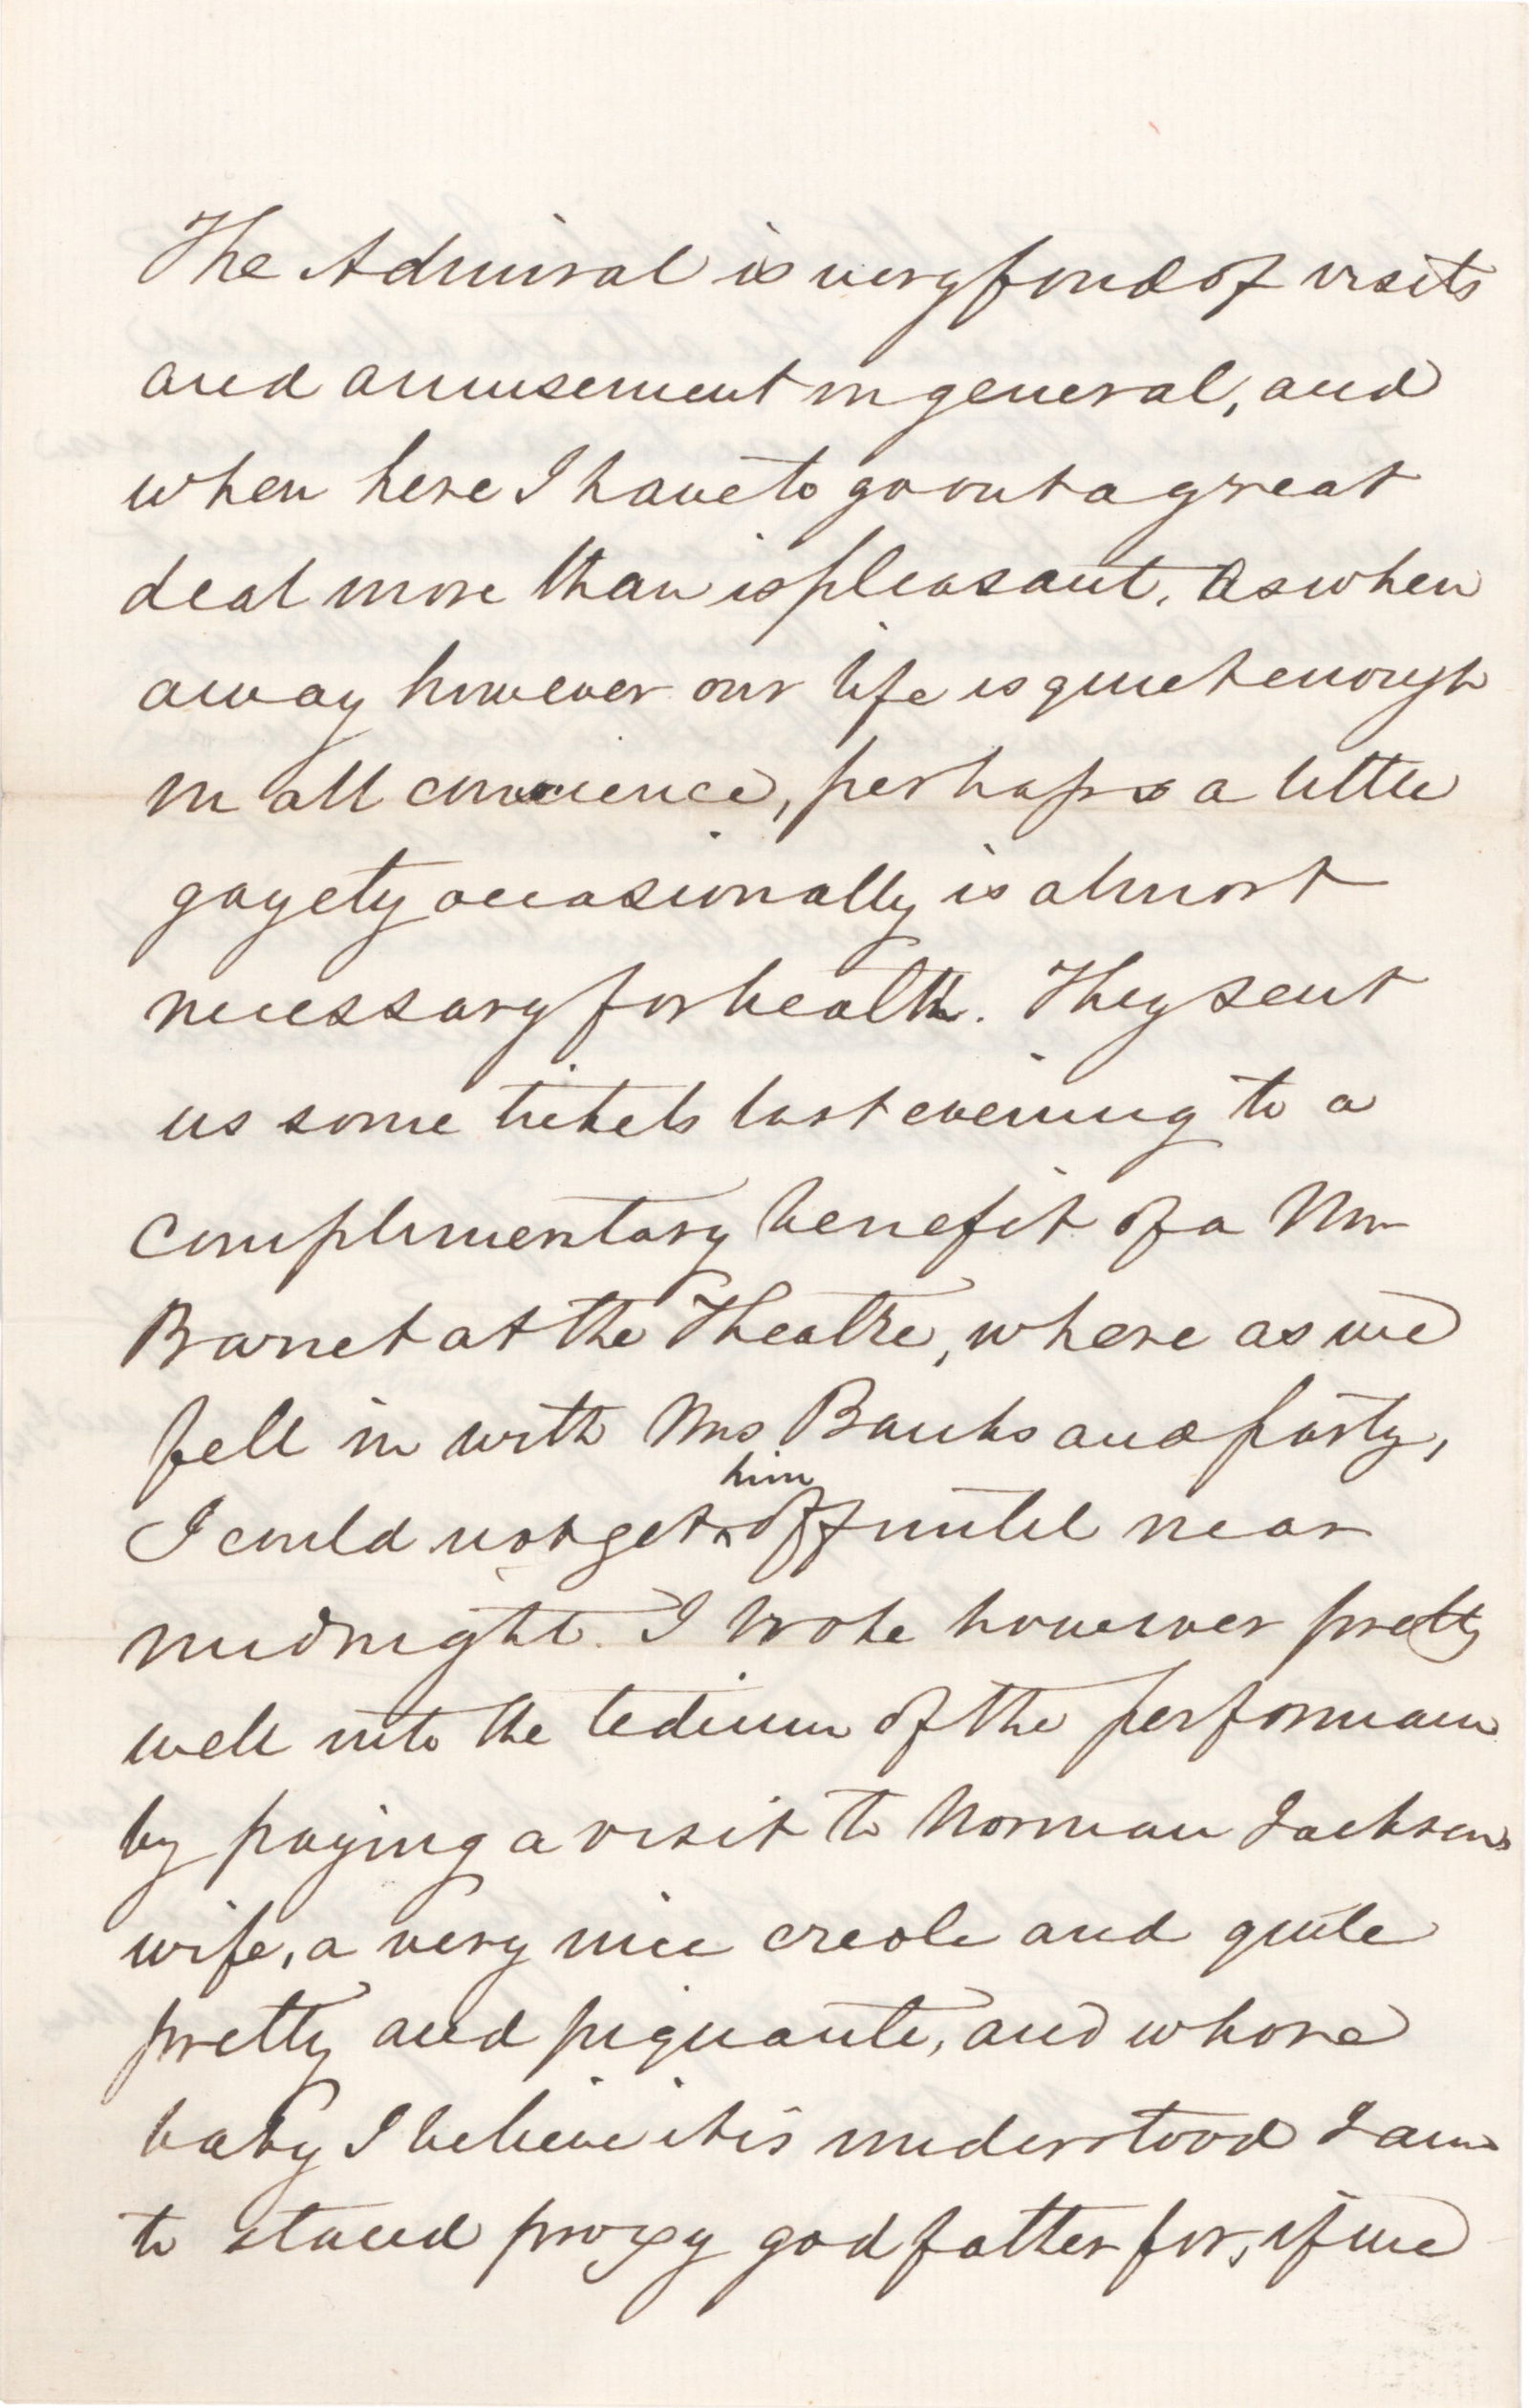 The Admiral is very fond of visits
and amusement in general, and
when here I have to go out a great
deal more than is pleasant. As when
away however our life is quiet enough
in all conscience, perhaps a little
gayety occasionally is almost
necessary for health. They sent
us some tickets last evening to a
complimentary benefit of a Mr
Barret at the Theatre, where as we
fell in with Mrs Banks and party,
I could not get him off until near
midnight. I broke however pretty
well into the tedium of the performance
by paying a visit to Norman Jacksons
wife, a very nice creole and quite
pretty and piquante, and whose
baby I believe it is understood I am
to stand proxy godfather for, if we